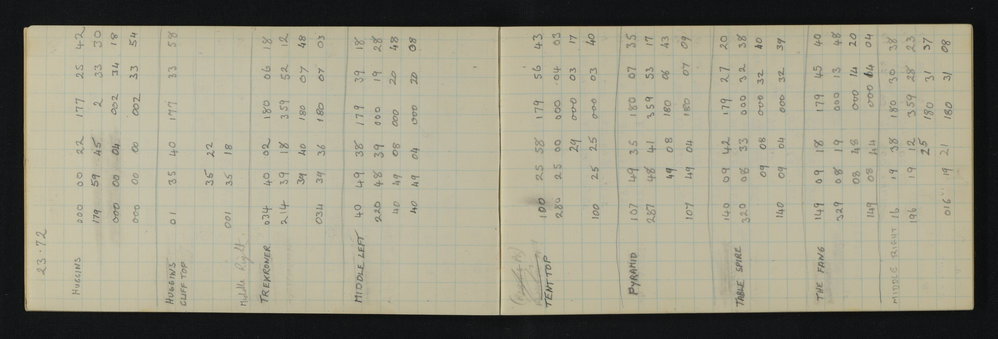 23.72
HUGGINS 000 00 22 177 25 42
179 59 45 2 33 30
000 00 04 002 34 18
000 00 00 002 33 54
HUGGINS 01 35 40 177 33 58
CLIFF TOP
35 22
Middle Right 001 35 18
TREKRONER 034 40 02 180 06 18
214 39 18 359 52 12
39 40 180 07 48
034 39 36 180 07 03
MIDDLE LEFT 40 49 38 179 39 18
220 48 39 000 19 28
40 49 08 000 20 48
40 49 04 000 20 08
TENT TOP 100 25 58 179 56 43
280 25 00 000 04 03
29 000 03 17
100 25 25 000 03 40
PYRAMID 107 49 35 180 07 35
287 48 41 359 53 17
49 08 180 06 43
107 49 04 180 07 09
TABLE SPIRE 140 09 42 179 27 20
320 08 33 000 32 38
09 08 000 32 40
140 09 04 000 32 39
THE FANG 149 09 18 179 45 40
329 08 19 000 13 48
08 48 000 14 20
149 08 44 000 14 04
MIDDLE RIGHT 16 19 38 180 30 38
196 19 12 359 28 23
25 180 31 37
016 19 21 180 31 08